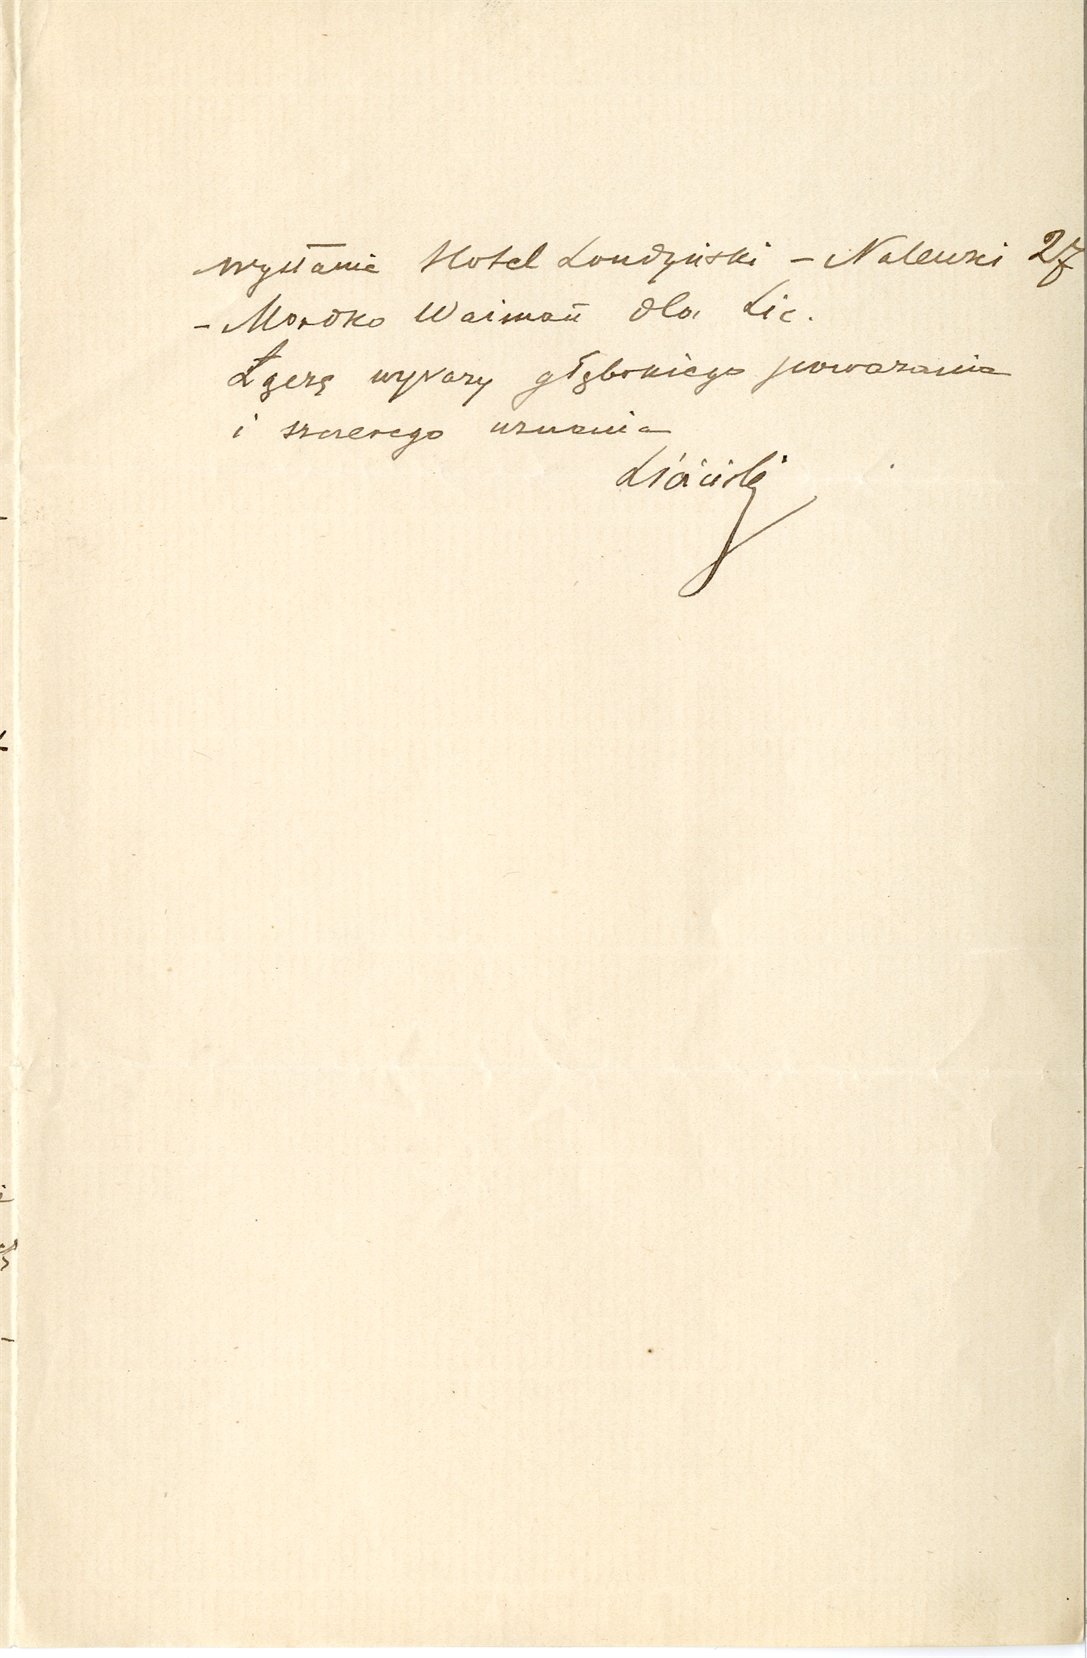 wysłanie Hotel Londyński – Nalewki 27
– Mordko Waiman dla Lic.
Łączę wyrazy głębokiego poważania
i szczerego uznania